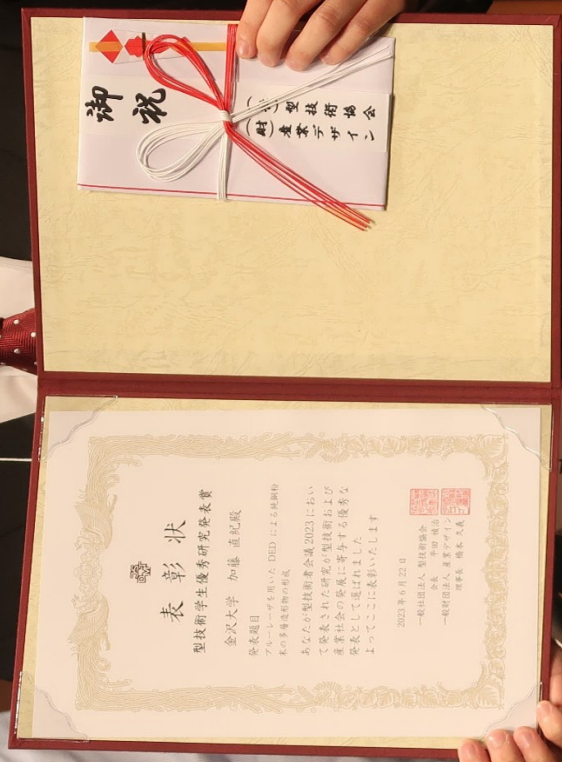 御祝
(一社)型技術協会
(財)産業デザイン
表彰状
型技術学生優秀研究発表賞
金沢大学 加藤 直紀殿
発表題目
ブルーレーザを用いた DED による純銅粉
末の多層造形物の形成
あなたが型技術者会議2023におい
て発表された研究が型技術および
産業社会の発展に寄与する優秀な
発表として選ばれました
よってここに表彰いたします
2023年6月22日
一般社団法人 型技術協会
会長
一般財団法人 産業デザイン
理事長 橋本 久義